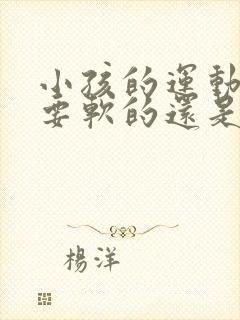 小孩的運動
要軟的還是
楊洋